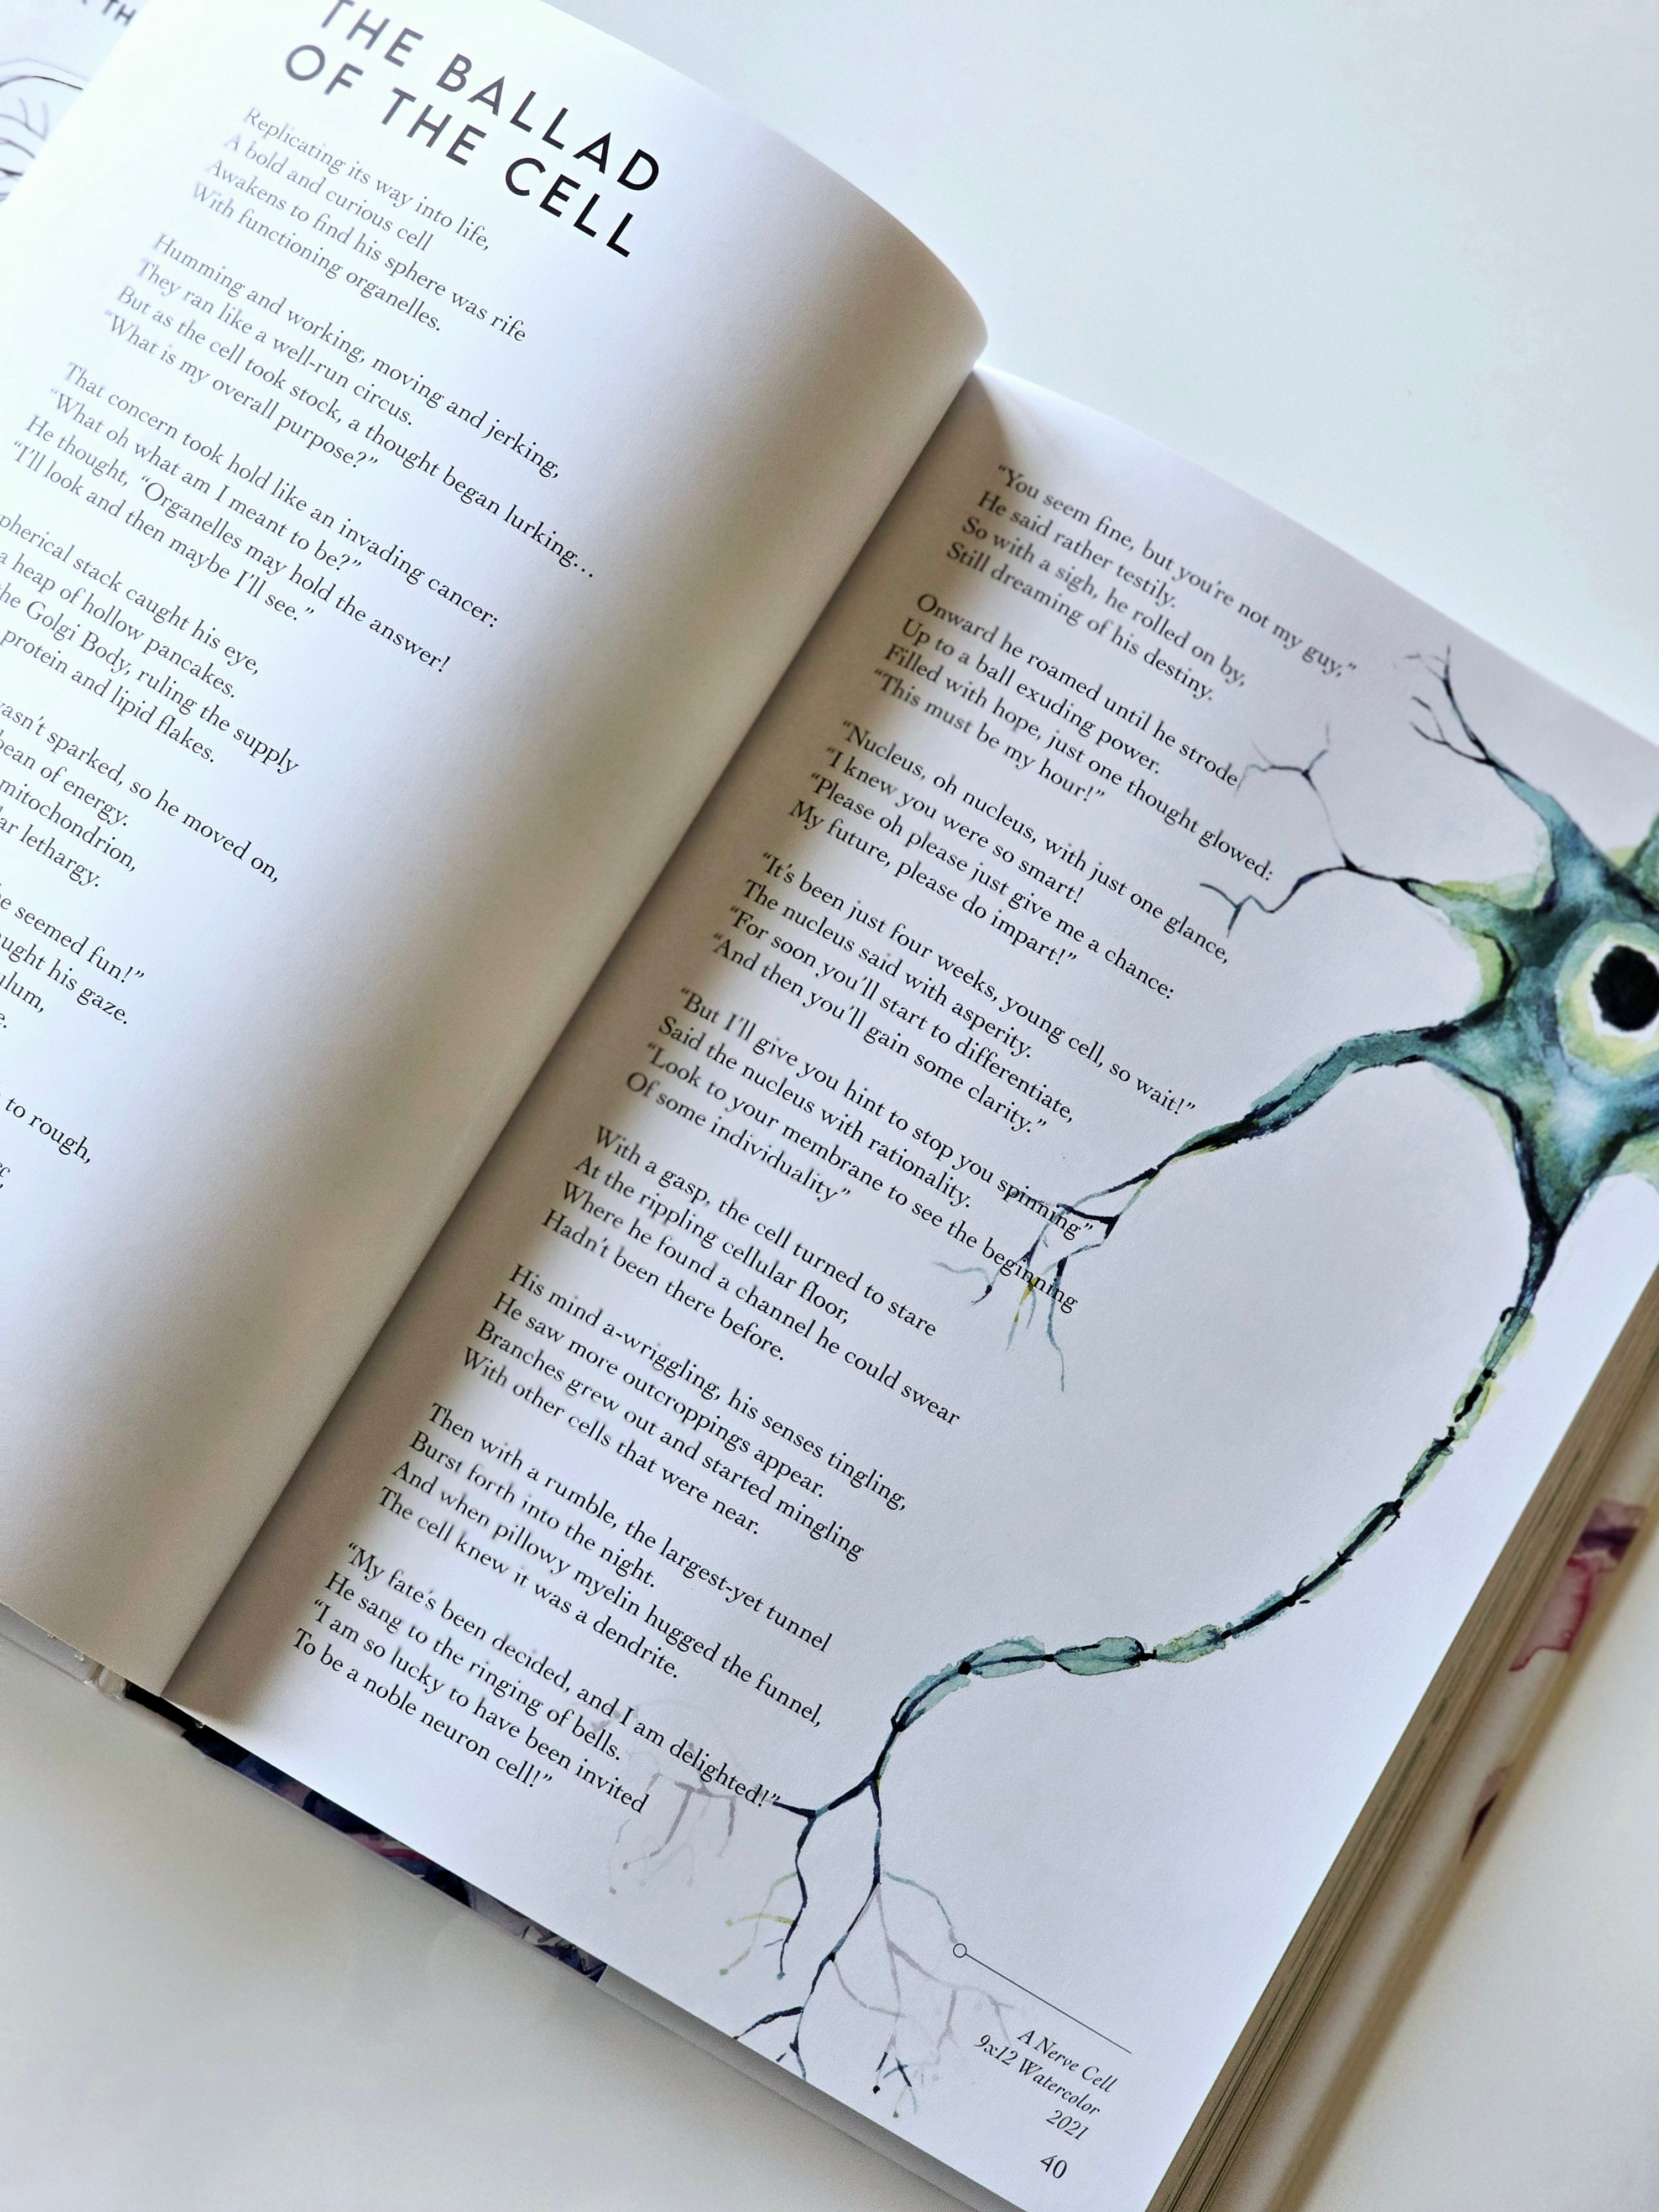 THE BALLAD
OF THE CELL
Replicating its way into life,
A bold and curious cell
Awakens to find his sphere was rife
With functioning organelles.
Humming and working, moving and jerking,
They ran like a well-run circus.
But as the cell took stock, a thought began lurking...
“What is my overall purpose?”
That concern took hold like an invading cancer:
“What oh what am I meant to be?”
He thought, “Organelles may hold the answer!
“I’ll look and then maybe I’ll see.”
spherical stack caught his eye,
a heap of hollow pancakes.
the Golgi Body, ruling the supply
protein and lipid flakes.
wasn’t sparked, so he moved on,
bean of energy.
mitochondrion,
lethargy.
seemed fun!”
caught his gaze.
to rough,
“You seem fine, but you’re not my guy,”
He said rather testily.
So with a sigh, he rolled on by,
Still dreaming of his destiny.
Onward he roamed until he strode
Up to a ball exuding power.
Filled with hope, just one thought glowed:
“This must be my hour!”
“Nucleus, oh nucleus, with just one glance,
“I knew you were so smart!
“Please oh please just give me a chance:
My future, please do impart!”
“It’s been just four weeks, young cell, so wait!”
The nucleus said with asperity.
“For soon you’ll start to differentiate,
“And then you’ll gain some clarity.”
“But I’ll give you hint to stop you spinning”
Said the nucleus with rationality.
“Look to your membrane to see the beginning
Of some individuality”
With a gasp, the cell turned to stare
At the rippling cellular floor,
Where he found a channel he could swear
Hadn’t been there before.
His mind a-wriggling, his senses tingling,
He saw more outcroppings appear.
Branches grew out and started mingling
With other cells that were near.
Then with a rumble, the largest-yet tunnel
Burst forth into the night.
And when pillowy myelin hugged the funnel,
The cell knew it was a dendrite.
“My fate’s been decided, and I am delighted!”
He sang to the ringing of bells.
“I am so lucky to have been invited
To be a noble neuron cell!”
A Nerve Cell
9x12 Watercolor
2021
40